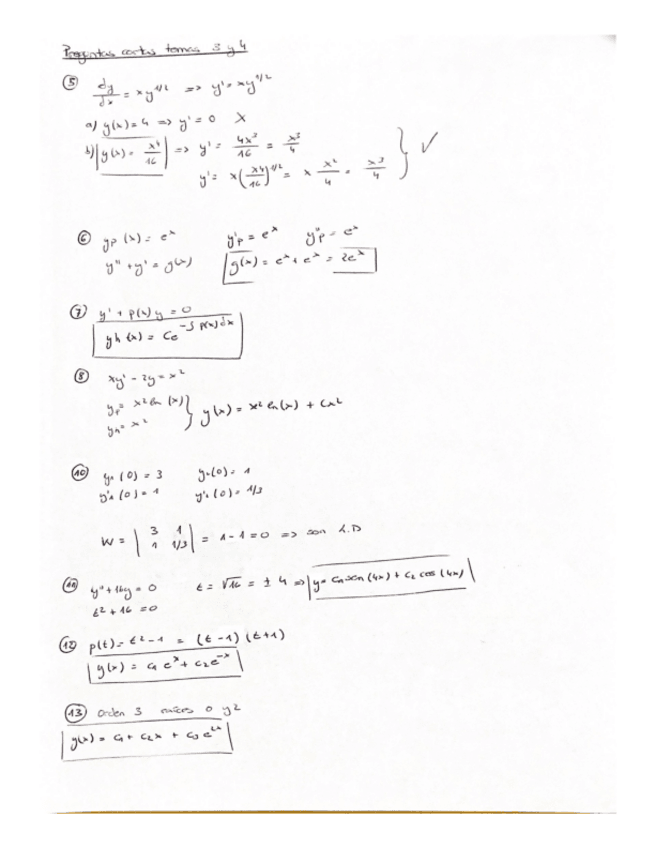 Preguntas cortas temas 3 y 4
⑤ dy/dx = xy^1/2 => y' = xy^1/2
a) y(x) = 4 => y' = 0 X
b) y(x) = x^4/16 => y' = 4x^3/16 = x^3/4
y' = x(x^4/16)^1/2 = x x^2/4 = x^3/4 } ✓
⑥ yp(x) = e^x y'p = e^x y''p = e^x
y'' + y' = g(x) g(x) = e^x + e^x = 2e^x
⑦ y' + p(x)y = 0
yh(x) = Ce^-∫p(x)dx
⑧ xy' - 2y = x^2
yp = x^2 ln(x)
yh = x^2 } y(x) = x^2 ln(x) + Cx^2
⑩ y1(0) = 3 y2(0) = 1
y'1(0) = 1 y'2(0) = 1/3
W = | 3 1
1 1/3 | = 1 - 1 = 0 => son L.D
⑪ y'' + 16y = 0 t = √16 = ± 4 => y = C1 sen(4x) + C2 cos(4x)
t^2 + 16 = 0
⑫ p(t) = t^2 - 1 = (t - 1)(t + 1)
y(x) = C1 e^x + C2 e^-x
⑬ Orden 3 raíces 0 y 2
y(x) = C1 + C2x + C3 e^2x